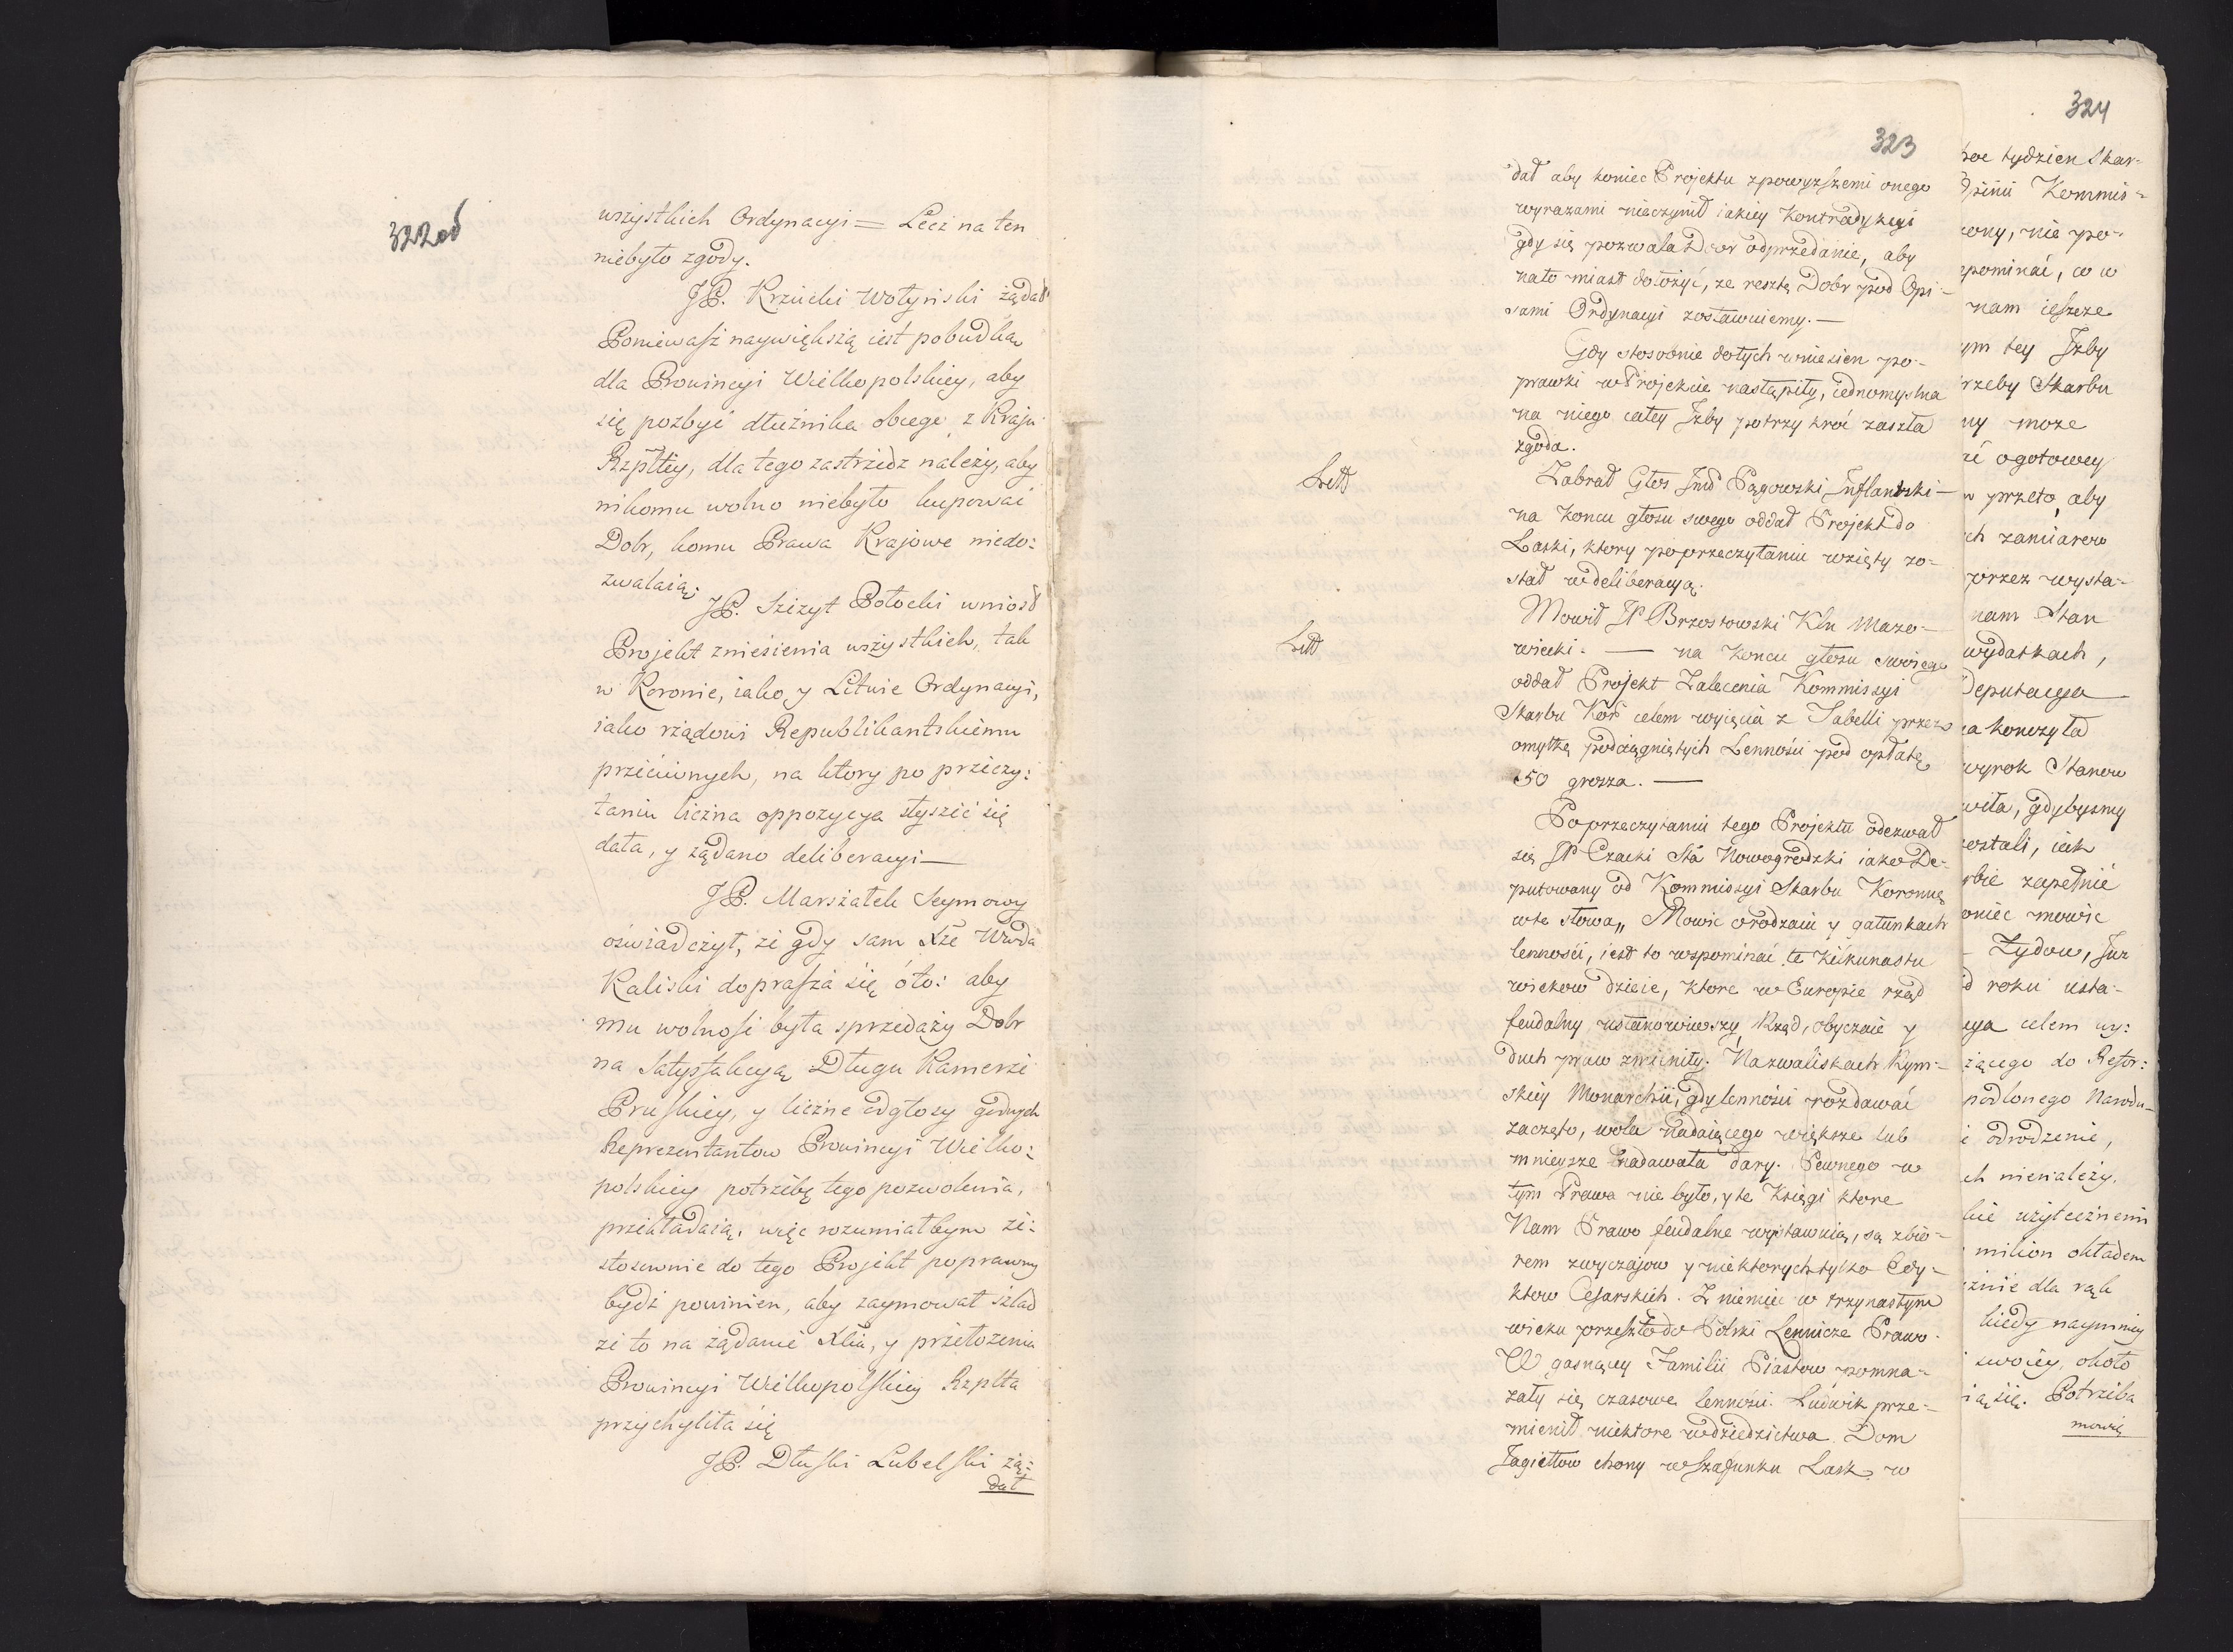 322od
wszystkich Ordynacyi = Lecz na ten
niebyło zgody.
JP. Krzucki Wołyński żądał
Ponieważ naywiększą iest pobudką
dla Prowincyi Wielkopolskiey, aby
się pozbyć dłużnika obcego z Kraju
Rzpltey, dla tego zastrzedz należy, aby
nikomu wolno niebyło kupować
Dobr, komu Prawa Krajowe niedo:
zwalaią.
JP. Szczyt Połocki wniosł
Projekt zniesienia wszystkich, tak
w Koronie, iako, y Litwie Ordynacyi,
iako rządowi Republikantskiemu
przeciwnych, na ktory po przeczy:
taniu liczna oppozycya słyszeć się
dała, y żądano deliberacyi —
JP. Marszałek Seymowy
oświadczył, że gdy sam Xże Wwda
Kaliski doprasza się oto: aby
mu wolności była sprzedaży Dobr
na Satysfakcyą Długu Kamerze
Pruskiey, y liczne odgłosy godnych
Reprezentantow Prowincyi Wielko:
polskiey potrzebę tego pozwolenia,
przekładaią. więc rozumiałbym ze:
stosownie do tego Projekt poprawny
bydź powinien, aby zaymował szlad
że to na żądanie Xcia, y przełożenia
Prowincyi Wielkopolskiey Rzplta
przychyliła się
JP. Dłuski Lubelski żą:
dał
323
dał aby koniec Projektu zpowyzszemi onego
wyrazami nieczynił iakiey kontradykcyi
gdy się pozwala Dobr odprzedanie, aby
nato miast dołożyć, ze resztę Dobr pod Opi-
sami Ordynacyi zostawuiemy. —
Gdy stosownie dotych wniesien po-
prawki w Projekcie nastąpiły, iednomyslna
na niego całey Izby potrzy kroć zaszła
zgoda.
Litt
Zabrał Głos Jmć Pągowski Inflantski —
na koncu głosu swego oddał Projekt do
Laski, ktory poprzeczytaniu wzięty zo-
stał wdeliberacyą.
Litt
Mowił JP Brzostowski Kln Mazo-
wiecki. — na koncu głosu swoiego
oddał Projekt Zalecenia Kommissyi
Skarbu Kor celem wyięcia z Tabelli przez
omyłkę podciągniętych Lennosci pod opłatę
50 grosza. —
Poprzeczytaniu tego Projektu odezwał
się JP Czacki Sta Nowogrodzki iako De-
putowany od Kommissyi Skarbu Koronne
wte słowa„ Mowic orodzaiu y gatunkach
lennosći, iest to wspominać te kilkunastu
wiekow dzieie, ktore w Europie rząd
feudalny ustanowiwszy, Rząd, obyczaie y
duch praw zmieniły. Nazwaliskach Rym-
skiey Monarchii, gdy lennosci rozdawać
zaczęto, wola nadaiącego większe lub
mnieysze nadawała dary. Pewnego w
tym Prawa nie było, y te Księgi ktore
Nam Prawo feudalne wystawuią, są zbio-
rem zwyczajow y niektorych tylko Edy-
ktow Cesarskich. Z niemiec w trzynastym
wieku przeszło do Polski Lennicze Prawo.
W gasnącey Familii Piastow pomna-
żały się czasowe lennosci. Ludwik prze-
mienił niektore wdziedzictwa. Dom
Jagiełłow chony wszafunku Lask w
324
tydzien Skar-
Kommis-
nie po-
w
nam ieszcze
tey Izby
Skarbu
moze
ogotowey
przeto, aby
zamiarow
przez wysta-
nam Stan
wydatkach,
Deputacya
konczyła
wyrok Stanow
gdybysmy
iak
zapełnić
mowić
Zydow, Jur
roku usta-
celem wy:
do Refor:
Narodu
odrodzenie,
nienależy.
użytecznemi
milion okładem
dla rąk
kiedy naymniey
swoiey, około
się. Potrzeba
mowię